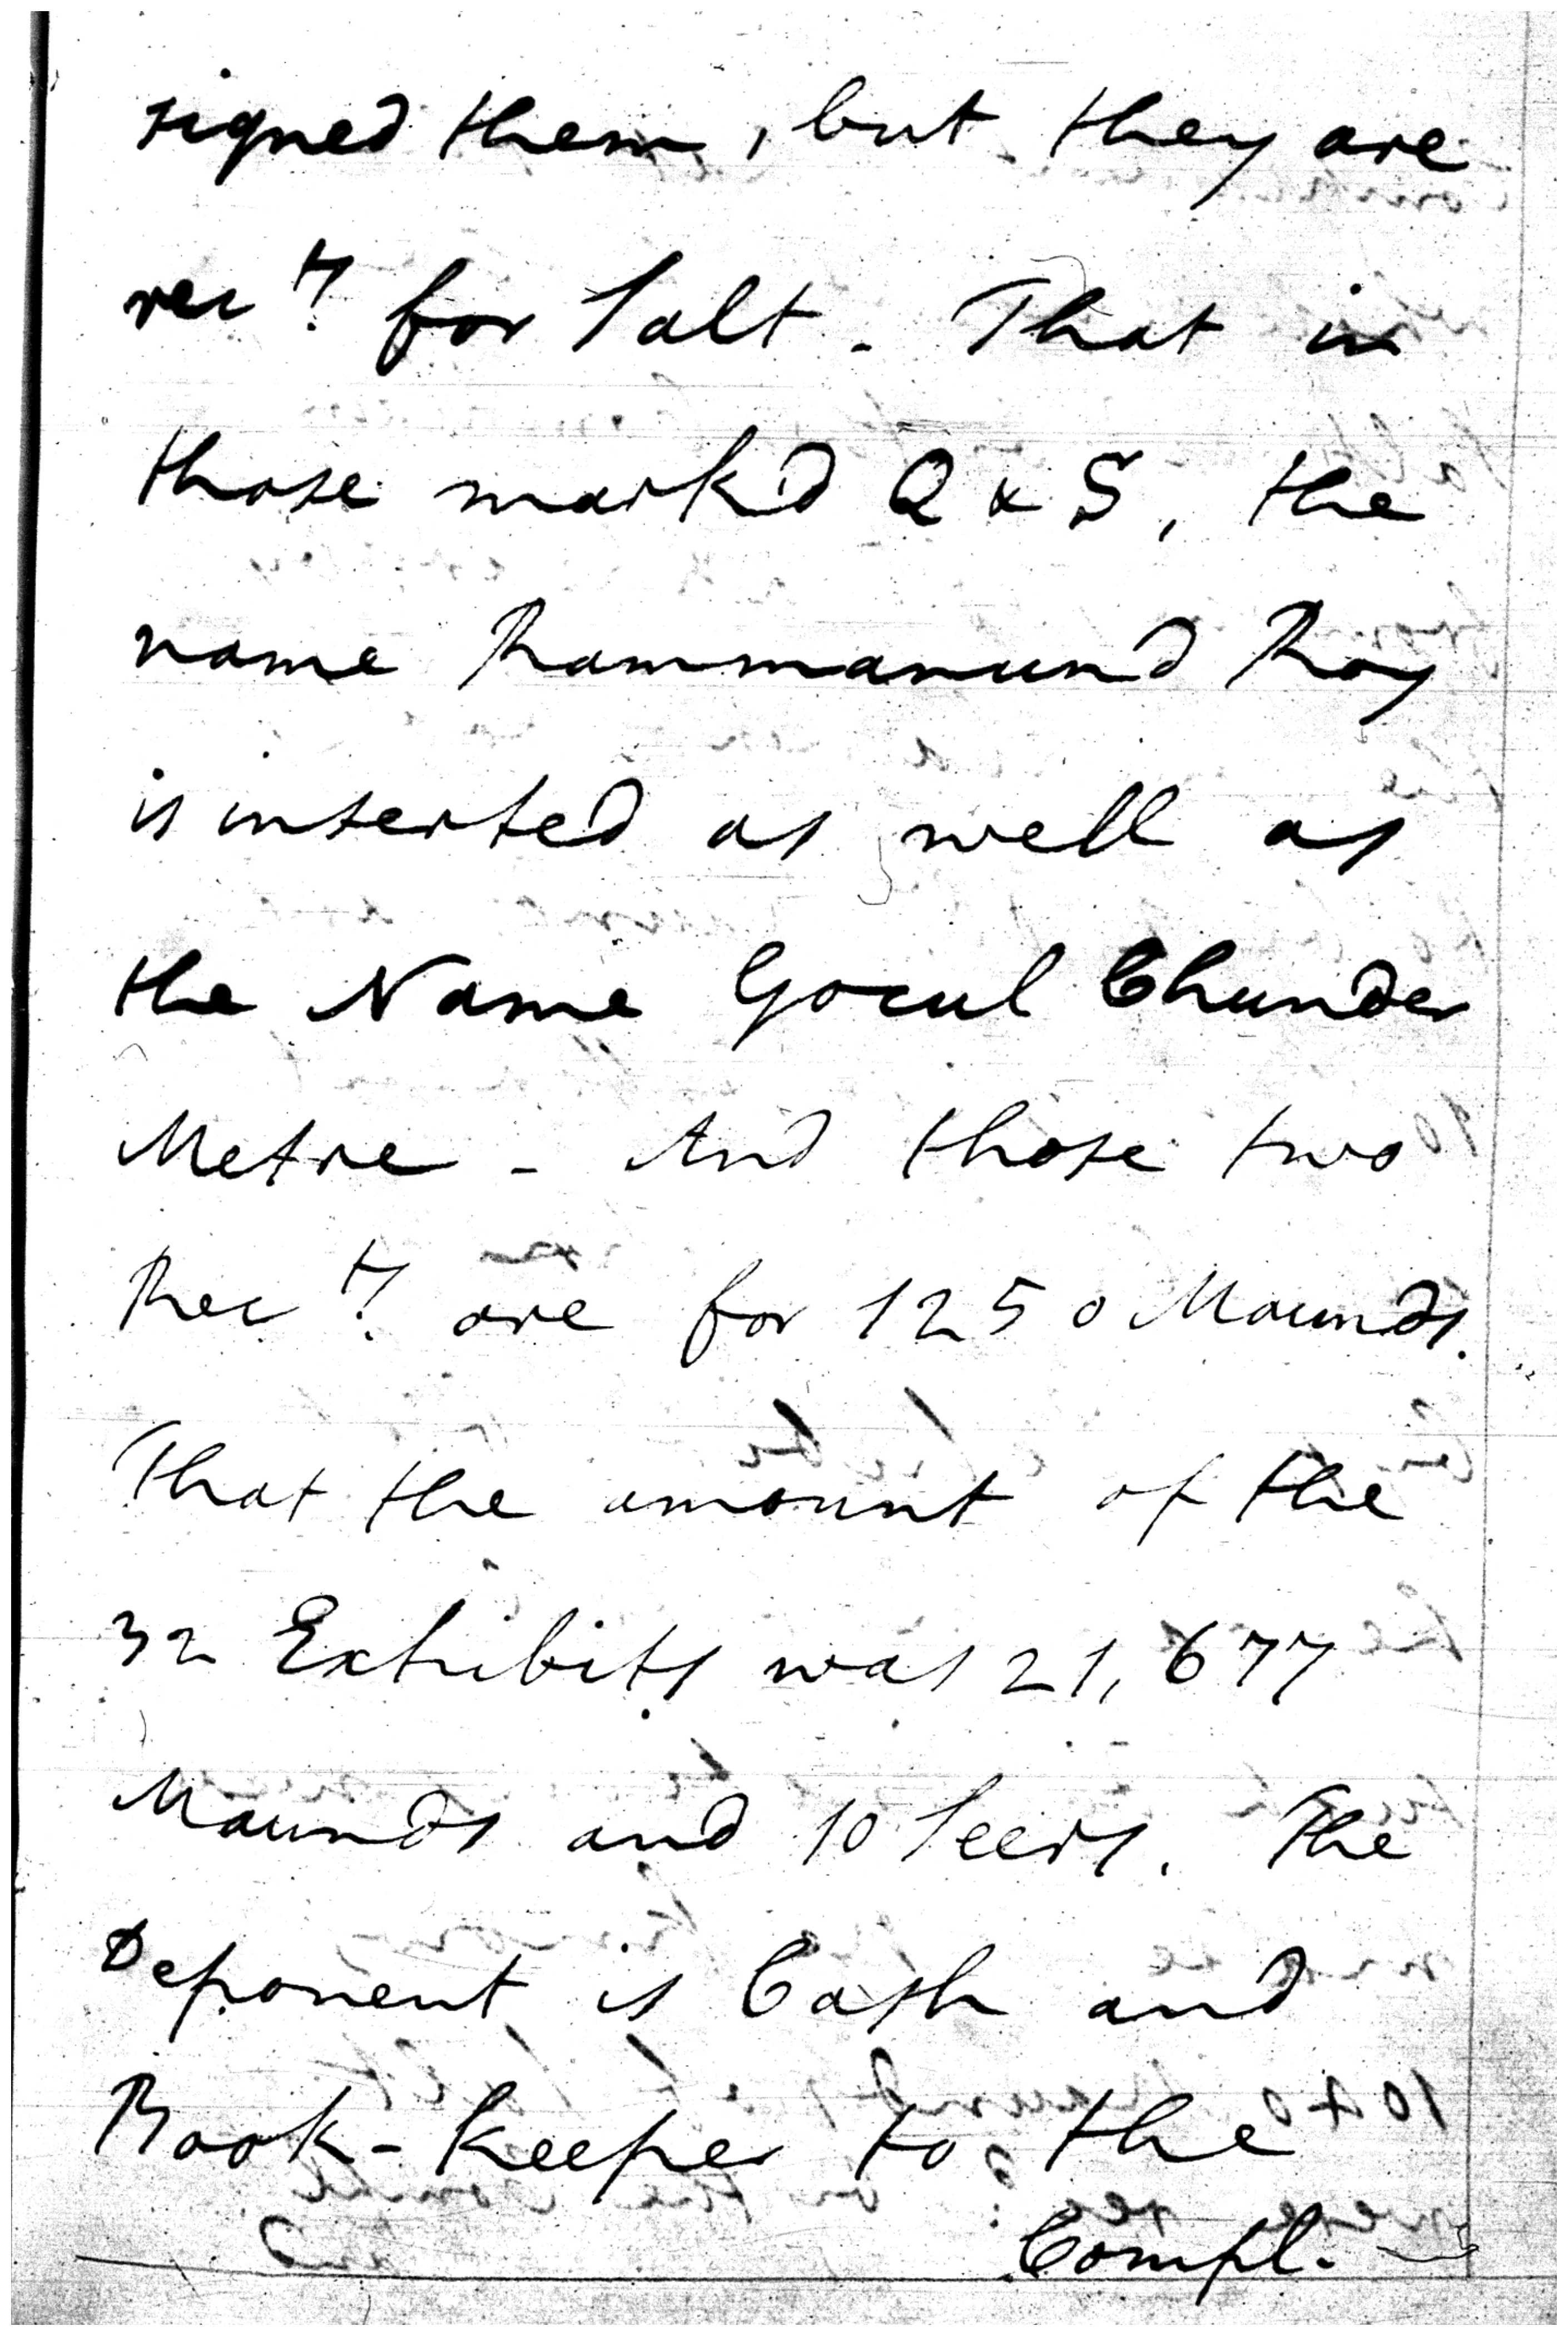 signed them, but they are
rec.ts for Salt. That in
those mark'd Q & S, the
name Rammanund Roy
is inserted as well as
the Name Gocul Chunder
Metre - And those two
Rec.ts are for 1250 Maunds.
That the amount of the
32 Exhibits was 21,677
Maunds and 10 Seers. The
Deponent is Cash and
Book-Keeper to the
Compl.